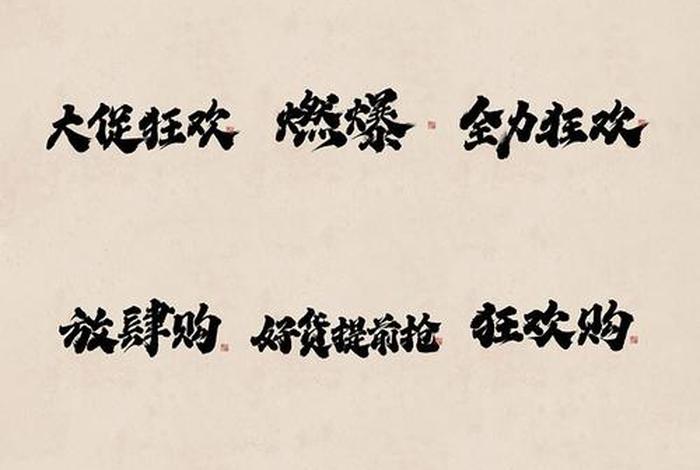 大促狂欢
燃爆
全力狂欢
放肆购
好货提前抢
狂欢购